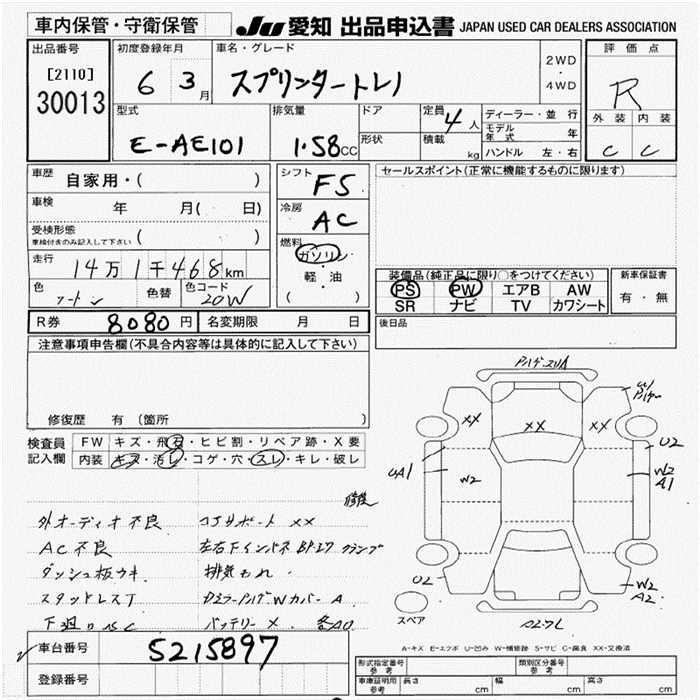 車内保管・守衛保管
JU 愛知 出品申込書 JAPAN USED CAR DEALERS ASSOCIATION
出品番号
[2110]
30013
初度登録年月
6 3月
車名・グレード
スプリンタートレノ
2WD
・
4WD
評価点
R
外装 内装
C C
型式
E-AE101
排気量
1.58CC
ドア
形状
定員 4人
積載 kg
ディーラー・並行
モデル年式 年
ハンドル 左・右
車歴 自家用・( )
車検 年 月( 日)
受検形態
車検付きのみ記入して下さい ( )
走行 14万1千468km
色 ツートン 色替 色コード 20W
シフト F5
冷房 AC
燃料
ガソリン
・
軽油
( )
セールスポイント(正常に機能するものに限ります)
装備品(純正品に限り○をつけてください)
PS PW エアB AW
SR ナビ TV カワシート
新車保証書
有・無
R券 8080円 名変期限 月 日
後日品
注意事項申告欄(不具合内容等は具体的に記入して下さい)
修復歴 有 (箇所 )
検査員記入欄
FW キズ・飛石・ヒビ割・リペア跡・X要
内装 キズ・汚レ・コゲ・穴・スレ・キレ・破レ
修復
外オーディオ不良 コアサポート XX
AC不良
ダッシュ板ウキ 排気もれ
スタッドレスT
バッテリーX 各AU
XX XX XX
UA1
W2
U2
W2
A1
U2
W2
A2
スペア
A-キズ E-エクボ U-凹み W-補修跡 S-サビ C-腐食 XX-交換済
車台番号 5215897
登録番号
形式指定番号 参考
類別区分番号 参考
車庫証明用 参考 長さ cm 幅 cm 高さ cm